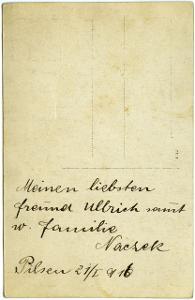 Meinen liebsten
freund Ullrich samt
w. familie
Naczek
Pilsen 21/I 916